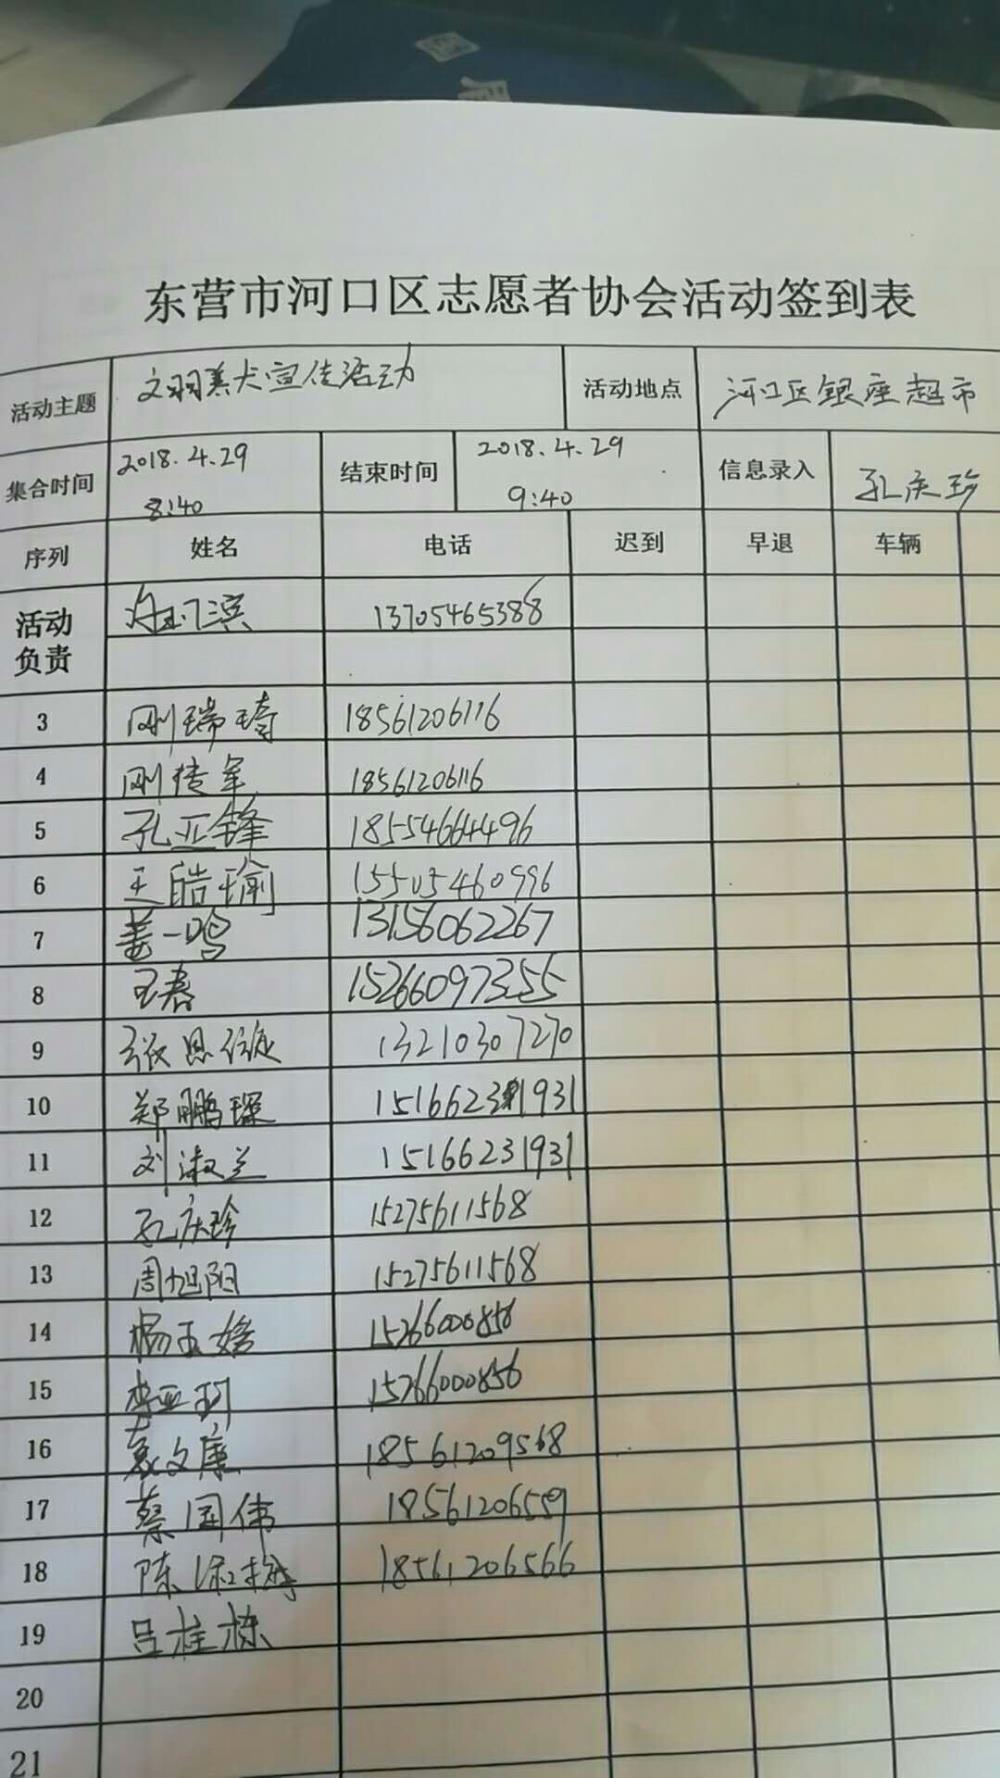 东营市河口区志愿者协会活动签到表
活动主题 文明养犬宣传活动 活动地点 河口区银座超市
集合时间 2018.4.29 8:40 结束时间 2018.4.29 9:40 信息录入 孔庆珍
序列 姓名 电话 迟到 早退 车辆
活动负责 滨 13705465388
3 刚瑞琦 18561206116
4 刚传军 18561206116
5 孔亚锋 18554664496
6 王皓瑜 15505460996
7 姜一鸣 13156062267
8 王春 15266097355
9 张恩 13210307270
10 郑鹏琛 15166231931
11 刘淑兰 15166231931
12 孔庆珍 15275611568
13 周旭阳 15275611568
14 杨玉婷 15266000856
15 李亚珂 15266000856
16 袁文康 18561209568
17 蔡国伟 18561206559
18 陈梅 18561206566
19 吕桂栋
20
21